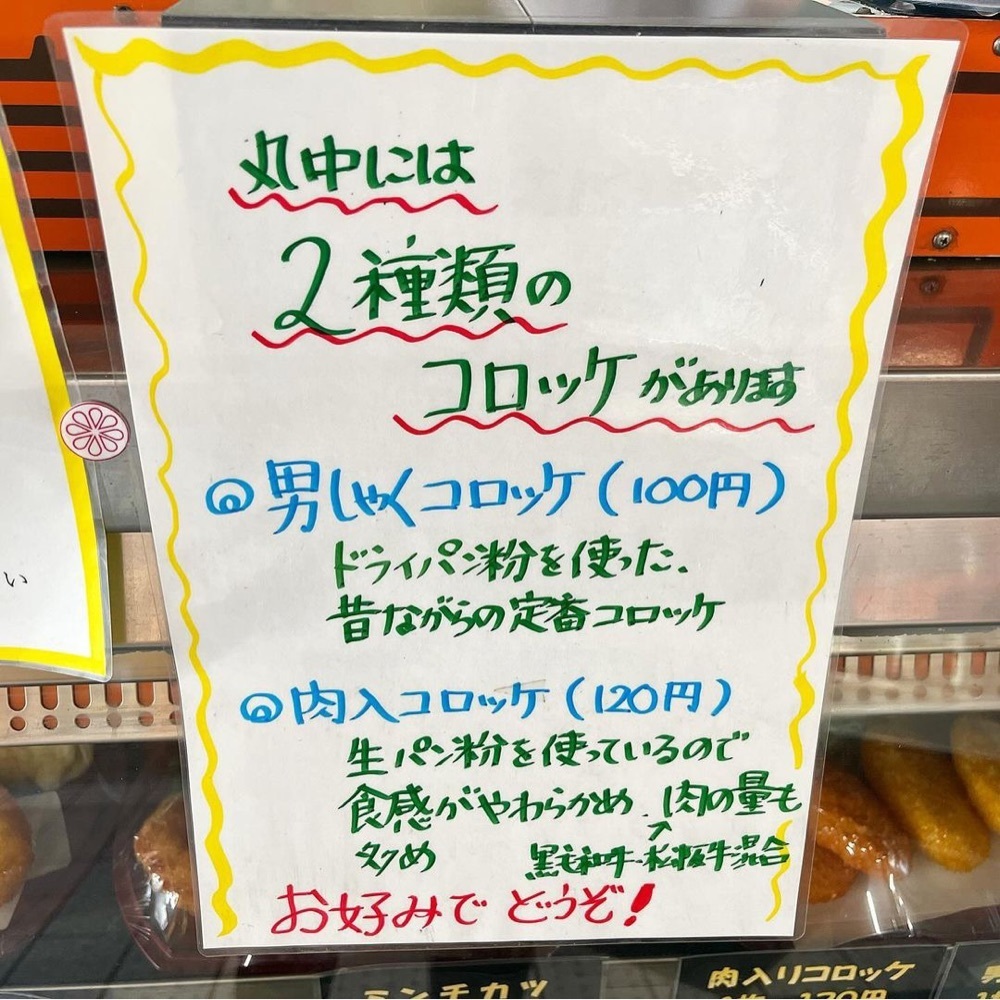 丸中には
2種類の
コロッケがあります
◎男しゃくコロッケ(100円)
ドライパン粉を使った、
昔ながらの定番コロッケ
◎肉入コロッケ(120円)
生パン粉を使っているので
食感がやわらかめ、肉の量も
多め
黒毛和牛・松阪牛混合
お好みでどうぞ!
い
ミンチカツ
肉入りコロッケ
120円